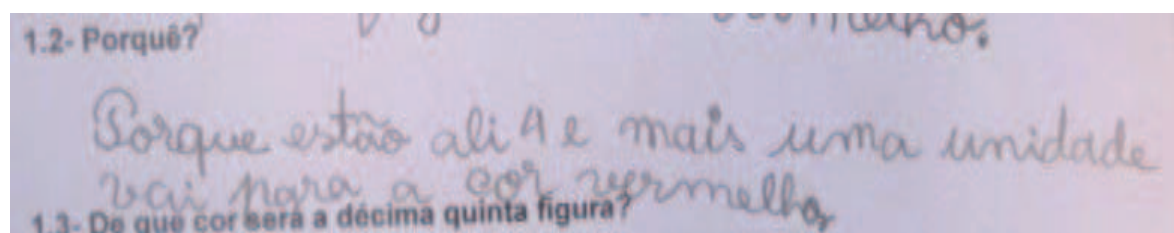 vermelho.
1.2- Porquê?
Porque estão ali 4 e mais uma unidade
vai para a cor vermelho,
1.3- De que cor será a décima quinta figura?